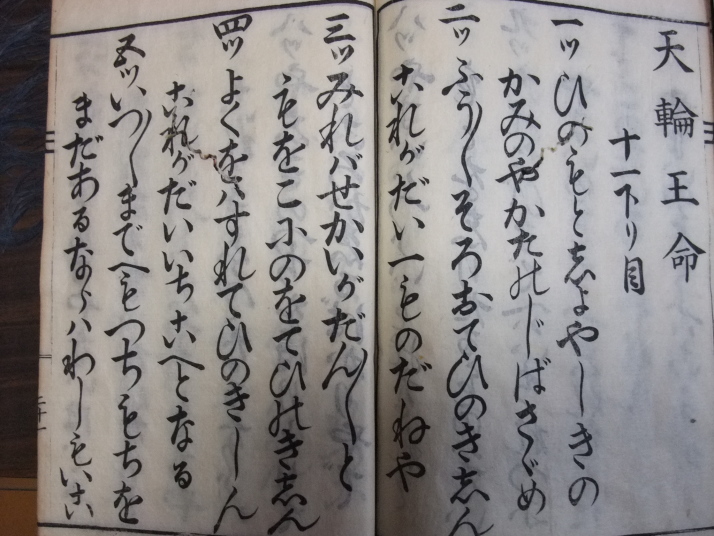 天輪王命
十一下り目
一ッひのもとしよやしきの
かみのやかたのじばさゞめ
二ッふう〳〵そろおてひのきしん
これがだい一ものだねや
三ッみればせかいがだん〳〵と
もをこふのをてひのきしん
四ッよくをハすれてひのきしん
これがだいいちこへとなる
五ッいつ〳〵までへもつちもちを
まだあるならハわしもいこ